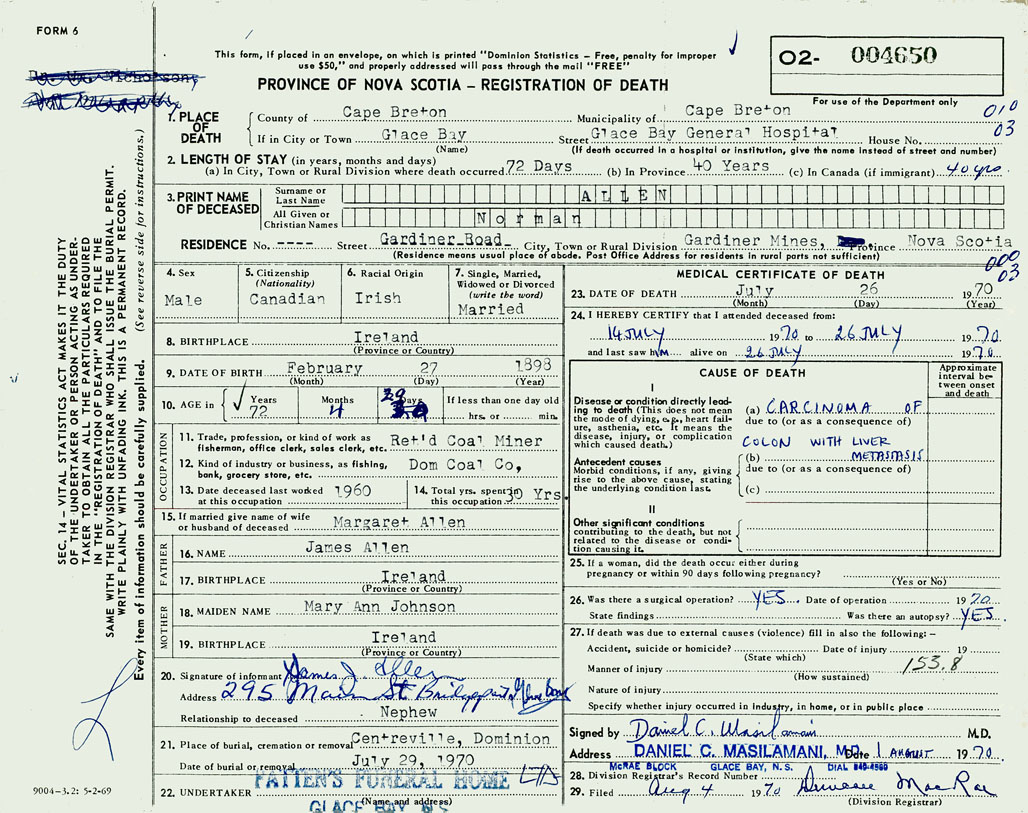 FORM 6
This form, if placed in an envelope, on which is printed "Dominion Statistics – Free, penalty for improper
use $50," and properly addressed will pass through the mail "FREE"
PROVINCE OF NOVA SCOTIA – REGISTRATION OF DEATH
02- 004650
For use of the Department only
010
03
1. PLACE OF DEATH
County of Cape Breton Municipality of Cape Breton
If in City or Town Glace Bay Street Glace Bay General Hospital House No.
(Name) (If death occurred in a hospital or institution, give the name instead of street and number)
2. LENGTH OF STAY (in years, months and days)
(a) In City, Town or Rural Division where death occurred 72 Days (b) In Province 40 Years (c) In Canada (if immigrant) 40 yrs
3. PRINT NAME OF DECEASED
Surname or Last Name ALLEN
All Given or Christian Names Norman
RESIDENCE No. ---- Street Gardiner Road City, Town or Rural Division Gardiner Mines, Province Nova Scotia
(Residence means usual place of abode. Post Office Address for residents in rural parts not sufficient)
000
03
4. Sex
Male
5. Citizenship
(Nationality)
Canadian
6. Racial Origin
Irish
7. Single, Married,
Widowed or Divorced
(write the word)
Married
8. BIRTHPLACE Ireland
(Province or Country)
9. DATE OF BIRTH February 27 1898
(Month) (Day) (Year)
10. AGE in Years 72 Months 4 Days 29 If less than one day old
hrs. or min.
OCCUPATION
11. Trade, profession, or kind of work as
fisherman, office clerk, sales clerk, etc. Ret'd Coal Miner
12. Kind of industry or business, as fishing,
bank, grocery store, etc. Dom Coal Co,
13. Date deceased last worked
at this occupation 1960
14. Total yrs. spent in
this occupation 30 Yrs.
15. If married give name of wife
or husband of deceased Margaret Allen
FATHER
16. NAME James Allen
17. BIRTHPLACE Ireland
(Province or Country)
MOTHER
18. MAIDEN NAME Mary Ann Johnson
19. BIRTHPLACE Ireland
(Province or Country)
20. Signature of informant James J. Allen
Address 295 Main St Bridgeport, Glace Bay
Relationship to deceased Nephew
21. Place of burial, cremation or removal Centreville, Dominion
Date of burial or removal July 29, 1970
PATTEN'S FUNERAL HOME LTD
22. UNDERTAKER
(Name and address)
GLACE BAY, N.S.
MEDICAL CERTIFICATE OF DEATH
23. DATE OF DEATH July 26 1970
(Month) (Day) (Year)
24. I HEREBY CERTIFY that I attended deceased from:
14 JULY 1970 to 26 JULY 1970
and last saw him alive on 26 JULY 1970
CAUSE OF DEATH
Approximate
interval be-
tween onset
and death
I
Disease or condition directly lead-
ing to death (This does not mean
the mode of dying, e.g., heart fail-
ure, asthenia, etc. It means the
disease, injury, or complication
which caused death.)
(a) CARCINOMA OF
due to (or as a consequence of)
COLON WITH LIVER
METASTASIS
Antecedent causes
Morbid conditions, if any, giving
rise to the above cause, stating
the underlying condition last.
(b)
due to (or as a consequence of)
(c)
II
Other significant conditions
contributing to the death, but not
related to the disease or condi-
tion causing it.
25. If a woman, did the death occur either during
pregnancy or within 90 days following pregnancy?
(Yes or No)
26. Was there a surgical operation? YES Date of operation 1970
State findings Was there an autopsy? YES
27. If death was due to external causes (violence) fill in also the following: –
Accident, suicide or homicide? Date of injury 19
(State which)
Manner of injury 153.8
(How sustained)
Nature of injury
Specify whether injury occurred in industry, in home, or in public place
Signed by Daniel C. Masilamani M.D.
Address DANIEL C. MASILAMANI, M.D. Date 1 AUGUST 1970
McRAE BLOCK GLACE BAY, N. S. DIAL 849-4560
28. Division Registrar's Record Number
29. Filed Aug 4 1970 Duncan MacRae
(Division Registrar)
SEC. 14 – VITAL STATISTICS ACT MAKES IT THE DUTY
OF THE UNDERTAKER OR PERSON ACTING AS UNDER-
TAKER TO OBTAIN ALL THE PARTICULARS REQUIRED
IN THE "REGISTRATION OF DEATH" AND TO FILE THE
SAME WITH THE DIVISION REGISTRAR WHO SHALL ISSUE THE BURIAL PERMIT.
WRITE PLAINLY WITH UNFADING INK. THIS IS A PERMANENT RECORD.
Every item of information should be carefully supplied. (See reverse side for instructions.)
9004-3.2: 5-2-69